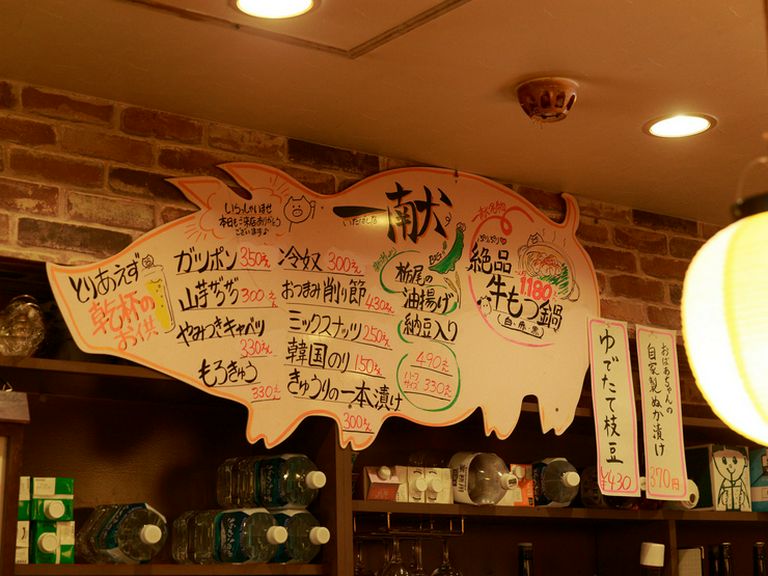 いらっしゃいませ
本日もご来店ありがとう
ございます♪
一献
いただしょう
とりあえず
乾杯の
お供
ガツポン 350えん
山芋ザクザク 300えん
やみつきキャベツ
330えん
もろきゅう
330えん
冷奴 300えん
おつまみ削り節
430えん
ミックスナッツ
250えん
韓国のり 150えん
きゅうりの一本漬け
300えん
栃尾の
油揚げ
納豆入り
490えん
ハーフ
サイズ 330えん
ぷりぷり
絶品
1180えん
牛もつ鍋
(白・赤・黒)
ゆでたて枝豆
¥430
おばあちゃんの
自家製ぬか漬け
370円